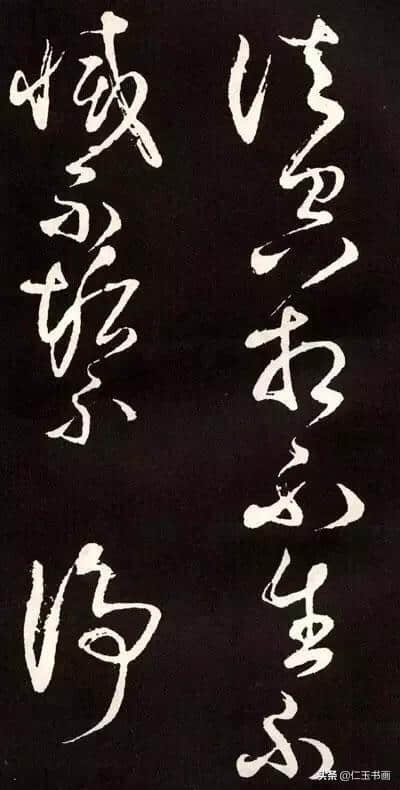 法空相不生不
灭不垢不
净
头条 @仁玉书画